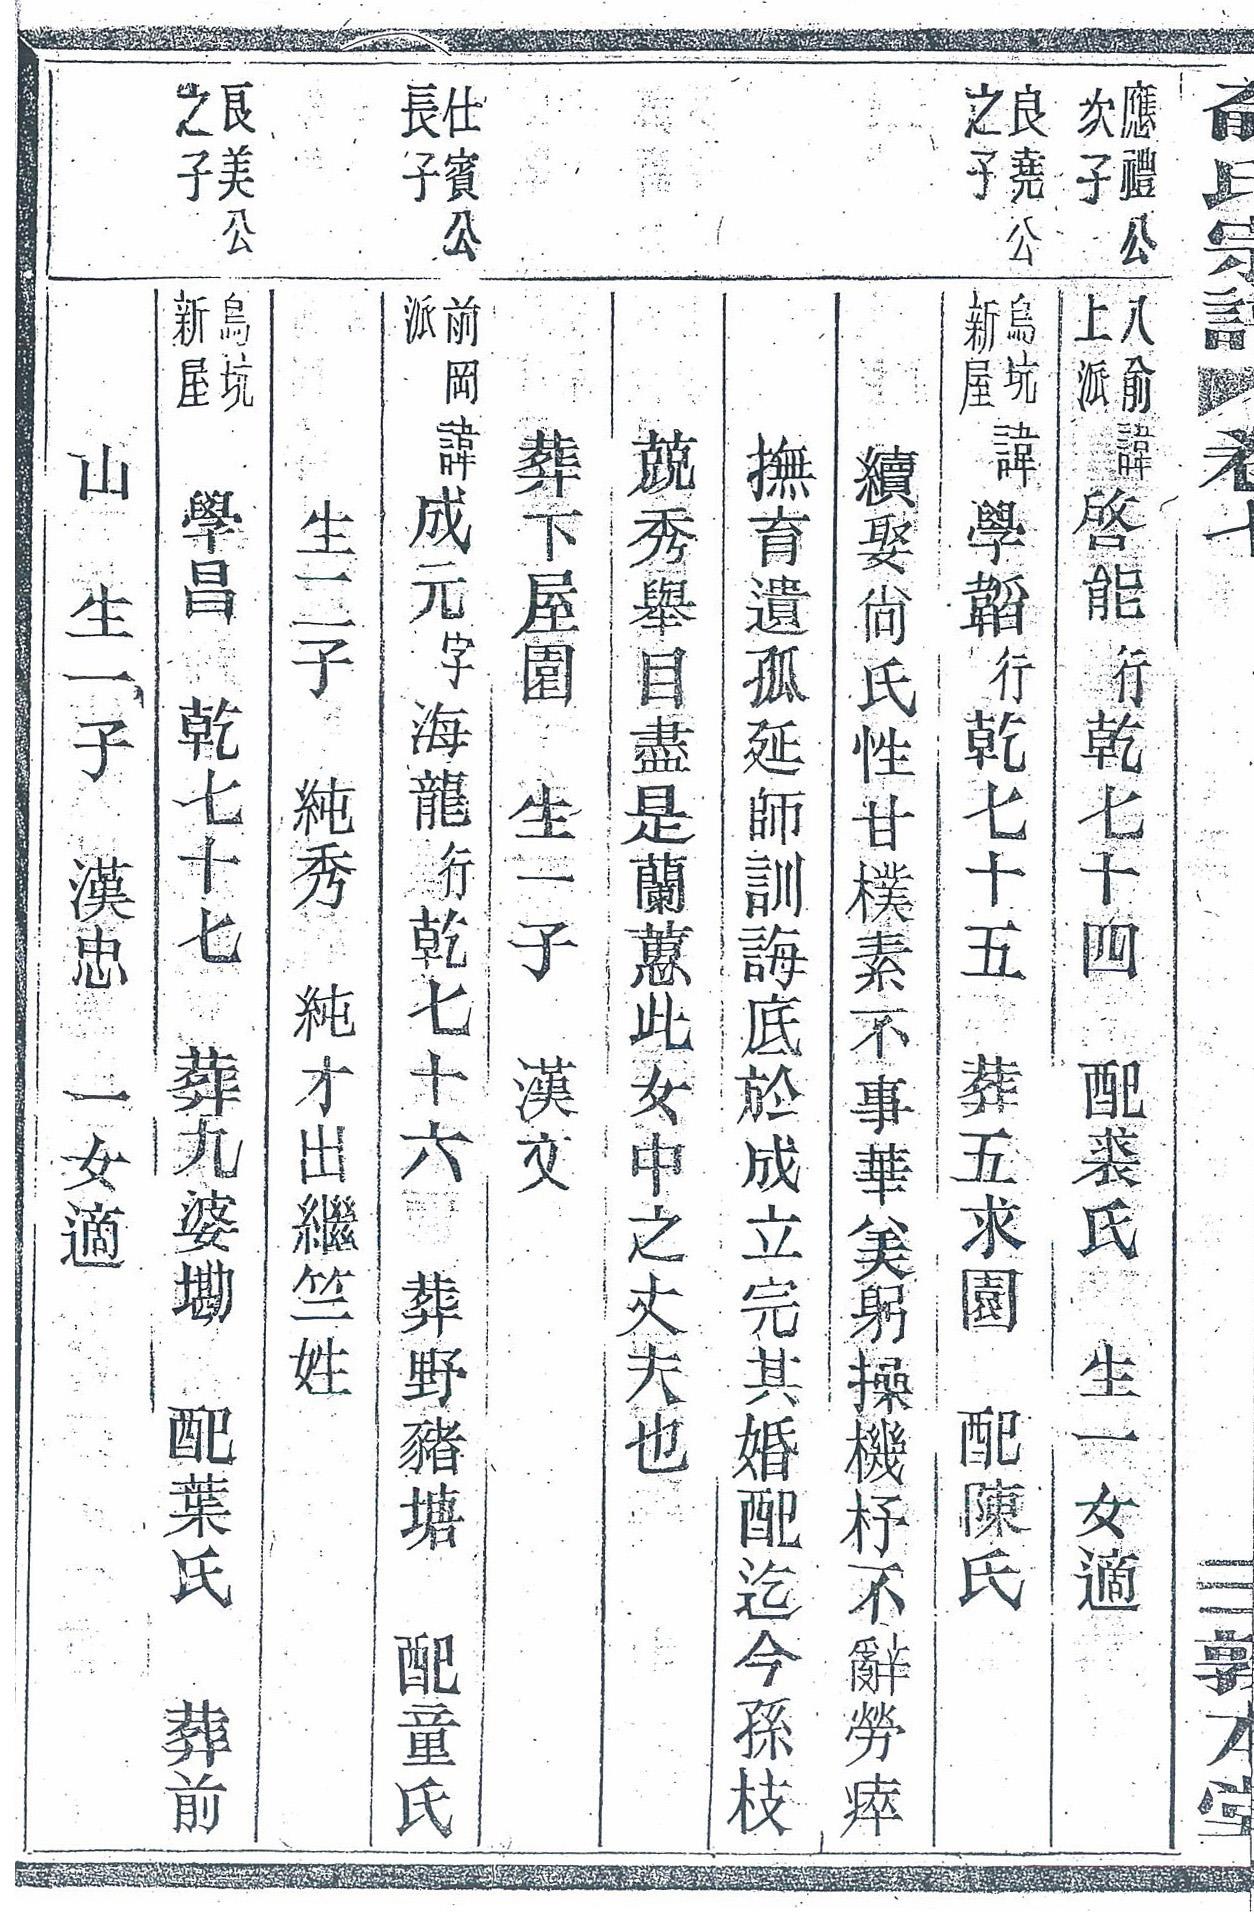 俞氏宗譜 卷七 三 敦本堂
應禮公
次子
八俞
上派
諱啓能行乾七十四 配裘氏 生一女適
良堯公
之子
烏坑
新屋
諱學韜行乾七十五 葬五求園 配陳氏
續娶尙氏性甘樸素不事華美躬操機杼不辭勞瘁
撫育遺孤延師訓誨底於成立完其婚配迄今孫枝
蔬秀舉目盡是蘭蕙此女中之丈夫也
葬下屋園 生一子 漢文
仕賓公
長子
前岡
派
諱成元字海龍行乾七十六 葬野豬塘 配童氏
生二子 純秀 純才出繼竺姓
良美公
之子
烏坑
新屋
學昌 乾七十七 葬九婆墈 配葉氏 葬前
山 生一子 漢忠 一女適